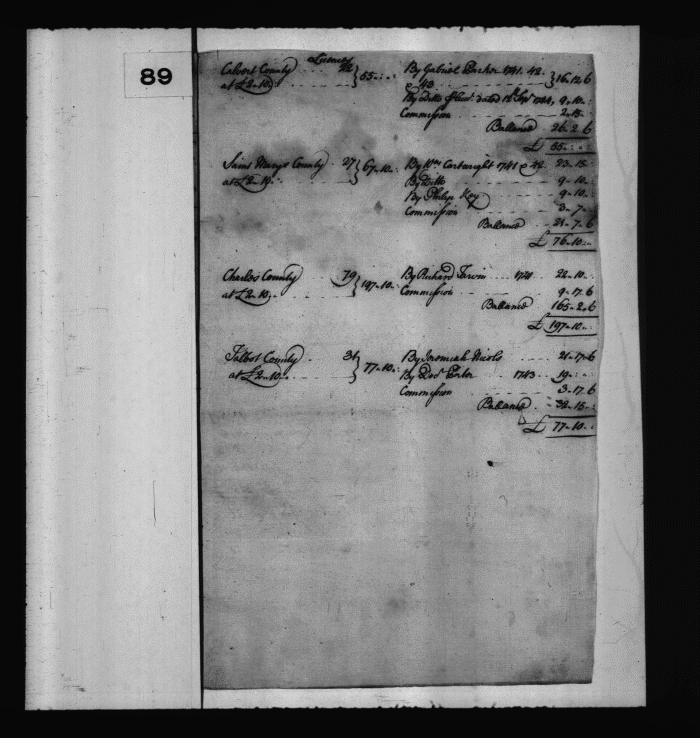 89
Licenses
Calvert County 22 } 55.. By Gabriel Parker 1741. 42. } 16.12.6
at £2.10 & 43
By Ditto dated Sepr 1744, 9.10
Commission 2.15
Ballance 26.2.6
£ 55
Saint Marys County 27 } 67.10. By Wm Cartwright 1741 & 42 23.15
at £2.10 By Ditto 9.10
By Philip Key 9.10
Commission 3.7
Ballance 21.7.6
£ 76.10
Charles County 79 } 197.10. By Richard 22.10
at £2.10 Commission 9.17.6
Ballance 165.2.6
£ 197.10
Talbot County 31 } 77.10. By Jeremiah Nicols 21.17.6
at £2.10 By 1743 19
Commission 3.17.6
Ballance 32.15
£ 77.10